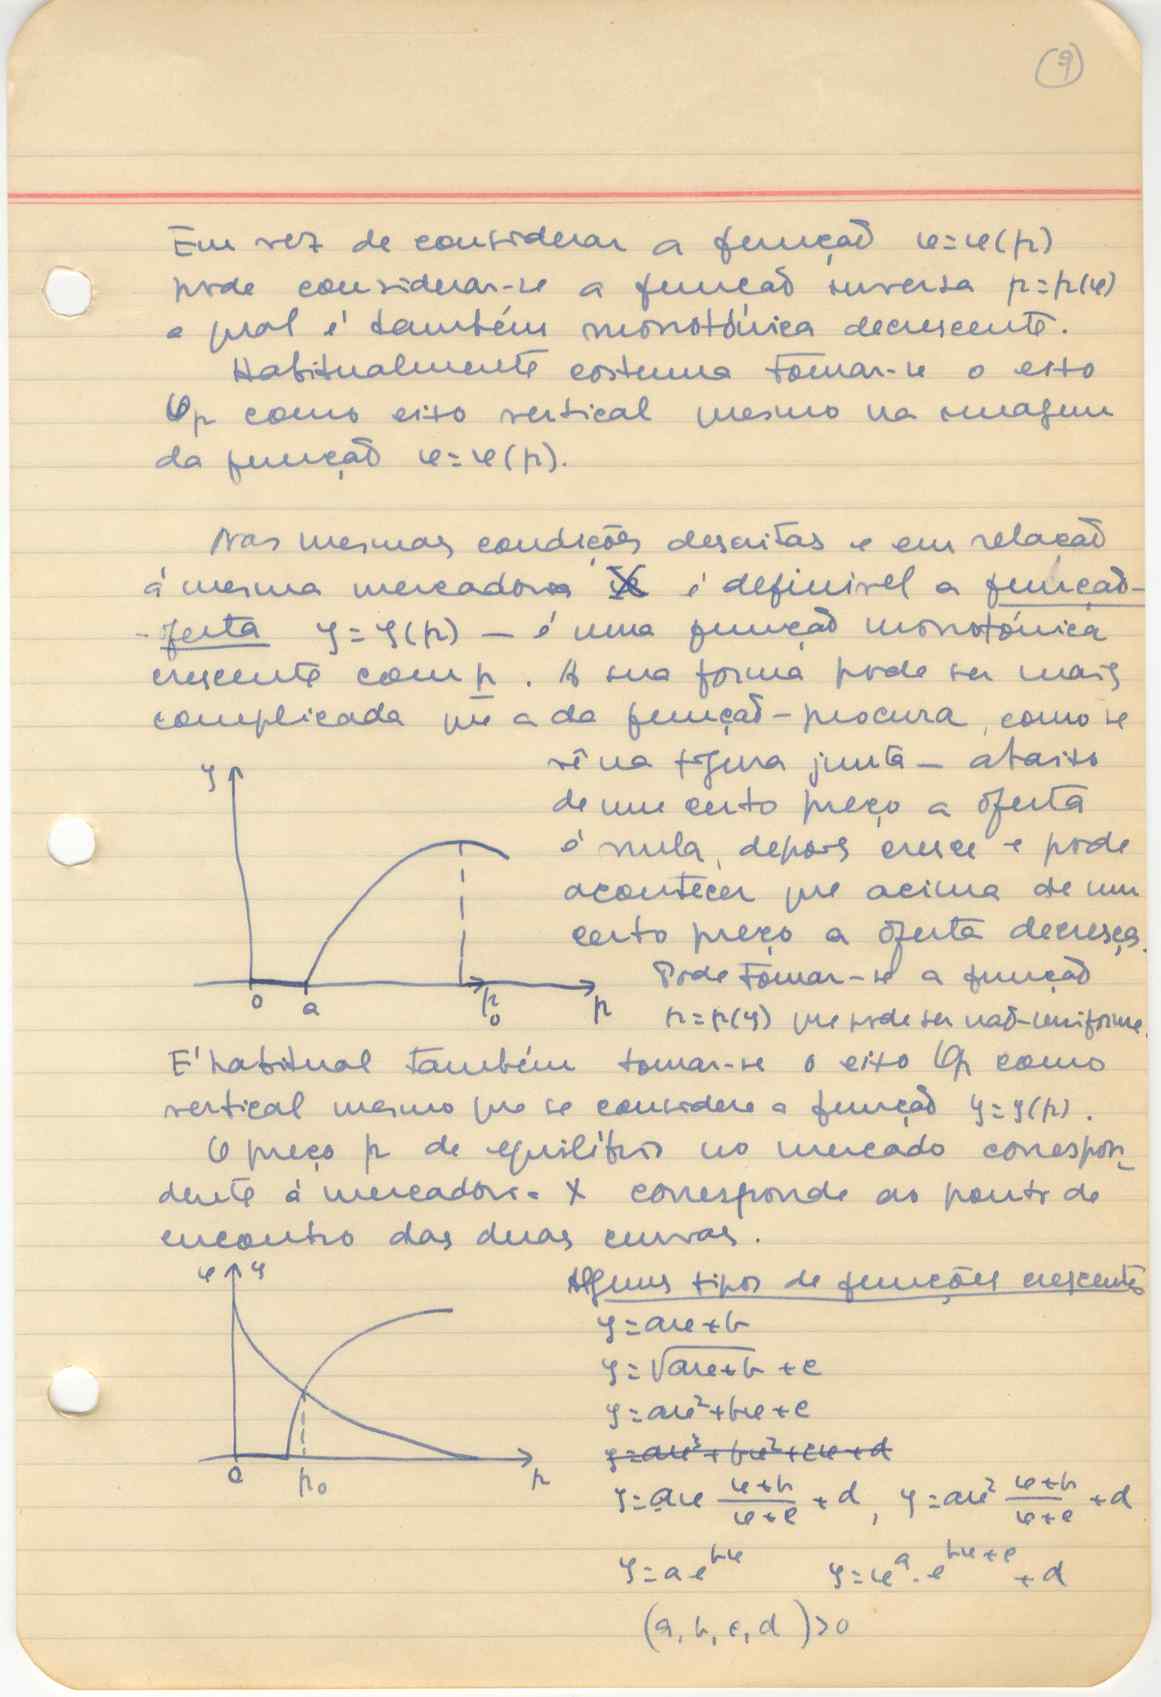 (9)
Em vez de considerar a função x=x(p)
pode considerar-se a função inversa p=p(x)
a qual é também monotónica decrescente.
Habitualmente costuma tomar-se o eixo
Op como eixo vertical mesmo na imagem
da função x=x(p).
Nas mesmas condições descritas e em relação
á mesma mercadoria X é definível a função-
-oferta y=y(p) — é uma função monotónica
crescente com p. A sua forma pode ser mais
complicada que a da função-procura, como se
vê na figura junta — abaixo
de um certo preço a oferta
é nula, depois cresce e pode
acontecer que acima de um
certo preço a oferta decresça.
Pode tomar-se a função
p=p(y) que pode ser não-uniforme.
y
0 a p₀ p
É habitual também tomar-se o eixo Op como
vertical mesmo que se considere a função y=y(p).
O preço p de equilíbrio no mercado correspon-
dente á mercadoria X corresponde ao ponto de
encontro das duas curvas.
x y
0 p₀ p
Alguns tipos de funções crescentes
y=ax+b
y=√(ax+b) +c
y=ax²+bx+c
y=ax³+bx²+cx+d
y=ax (x+b)/(x+c) +d, y=ax² (x+b)/(x+c) +d
y=a e^(bx) y=x^a. e^(bx+c) +d
(a, b, c, d)>0